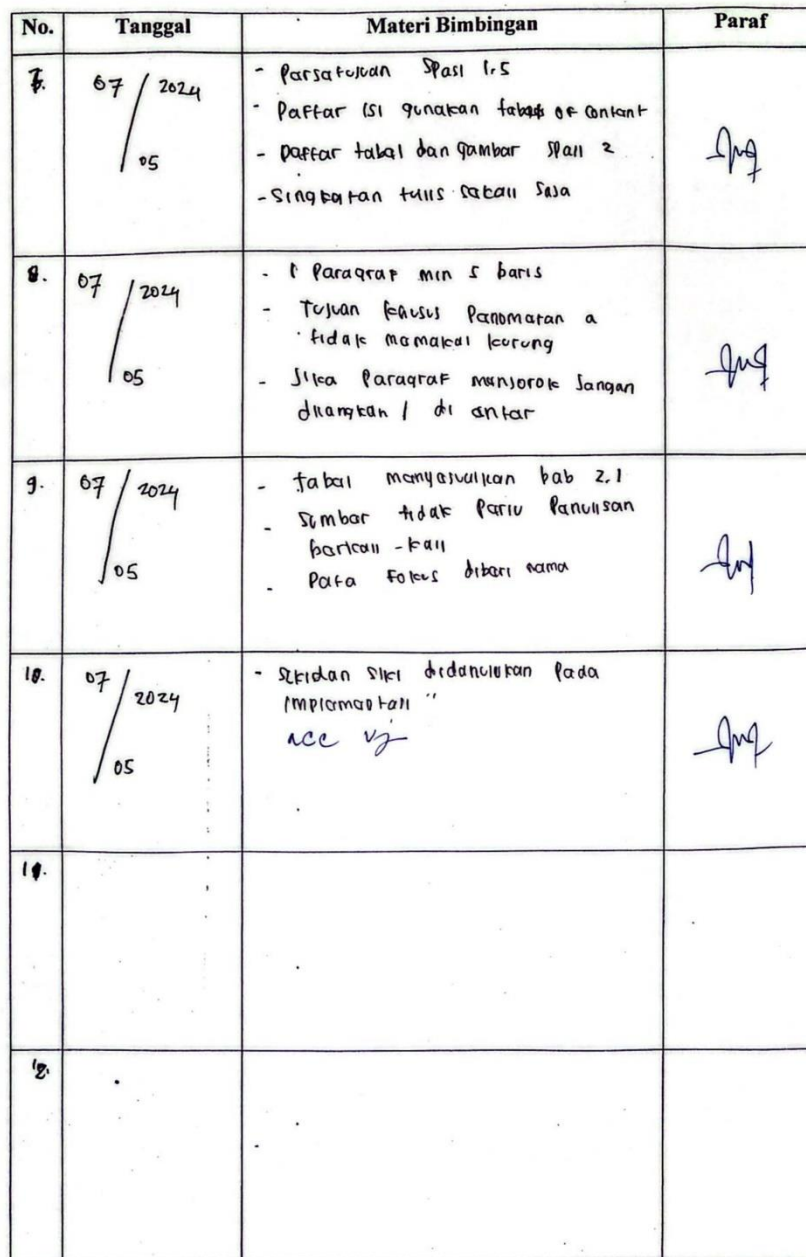 No. Tanggal Materi Bimbingan Paraf
7. 07/2024 - Persetujuan Spasi 1.5
05 - Daftar isi gunakan table of content
- Daftar tabel dan gambar spasi 2
- Singkatan tulis sekali saja
8. 07/2024 - 1 Paragraf min 5 baris
05 - Tujuan khusus Penomeran a
tidak memakai kurung
- Jika Paragraf menjorok jangan
/ di antar
9. 07/2024 - tabel menyesuaikan bab 2.1
05 - Sumber tidak Perlu Penulisan
berkali-kali
- Peta Fokus diberi nama
10. 07/2024 - SLKI dan SIKI Pada
05 Implementasi "
acc
11.
12.